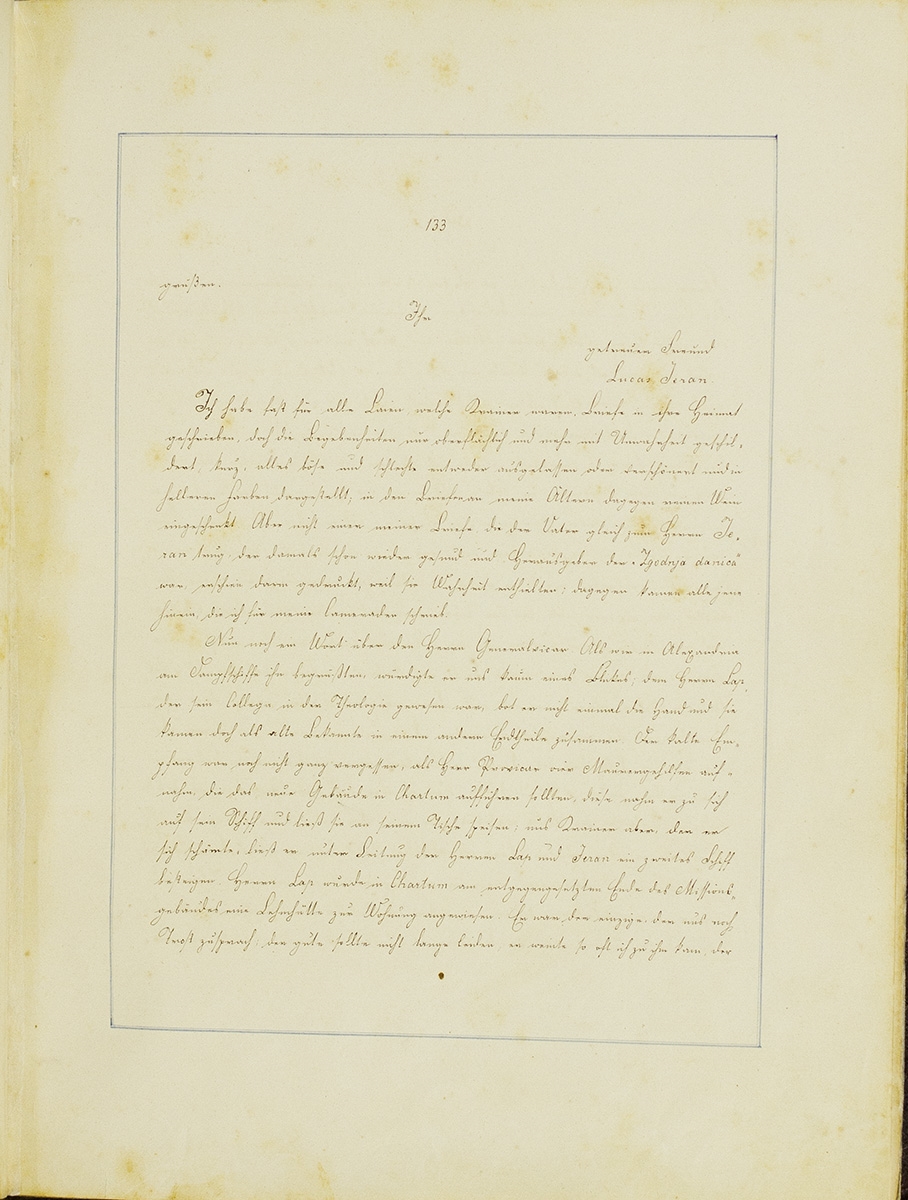 133
grüßen.
Ihr
getreuer Freund
Lucas Jeran.
Ich habe fast für alle Laien, welche Krainer waren, Briefe in ihre Heimat
geschrieben, doch die Begebenheiten nur oberflächlich und mehr mit Unwahrheit geschil-
dert, kurz, alles böse und schlechte entweder ausgelassen oder verschönert und in
helleren Farben dargestellt; in den Briefen an meine Ältern dagegen reinen Wein
eingeschenkt. Aber nicht einer meiner Briefe, die der Vater gleich zum Herrn Je-
ran trug, der damals schon wieder gesund und Herausgeber der „Zgodnja danica"
war, erschien darin gedruckt, weil sie Wahrheit enthielten; dagegen kamen alle jene
hinein, die ich für meine Cameraden schrieb.
Nun noch ein Wort über den Herrn Generalvicar. Als wir in Alexandria
am Dampfschiffe ihn begrüßten, würdigte er uns kaum eines Blickes; dem Herrn Lap,
der sein Collega in der Theologie gewesen war, bot er nicht einmal die Hand und sie
kamen doch als alte Bekannte in einem andern Erdtheile zusammen. Der kalte Em-
pfang war noch nicht ganz vergessen, als Herr Provicar vier Maurergehilfen auf-
nahm, die das neue Gebäude in Chartum aufführen sollten; diese nahm er zu sich
auf sein Schiff und ließ sie an seinem Tische speisen; uns Krainer aber, der er
sich schämte, ließ er unter Leitung der Herren Lap und Jeran ein zweites Schiff
besteigen. Herrn Lap wurde in Chartum am entgegengesetzten Ende des Missions-
gebäudes eine Lehmhütte zur Wohnung angewiesen. Er war der einzige, der uns noch
Trost zusprach; der gute sollte nicht lange leiden, er weinte so oft ich zu ihm kam, der